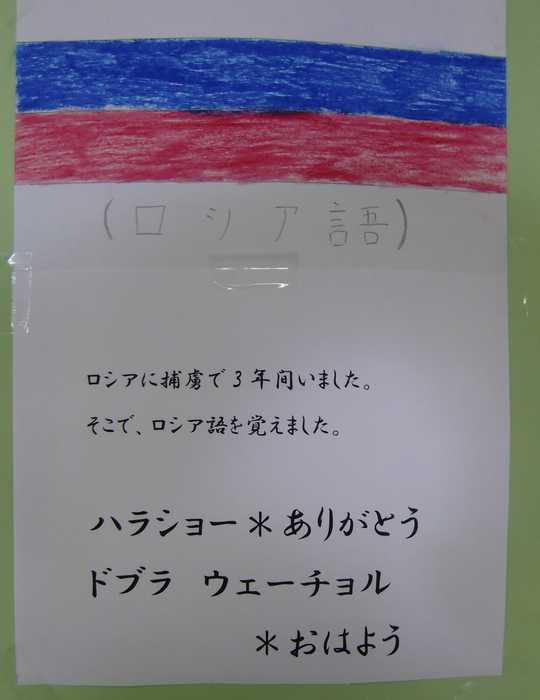 (ロシア語)
ロシアに捕虜で3年間いました。
そこで、ロシア語を覚えました。
ハラショー＊ありがとう
ドブラ ウェーチョル
＊おはよう